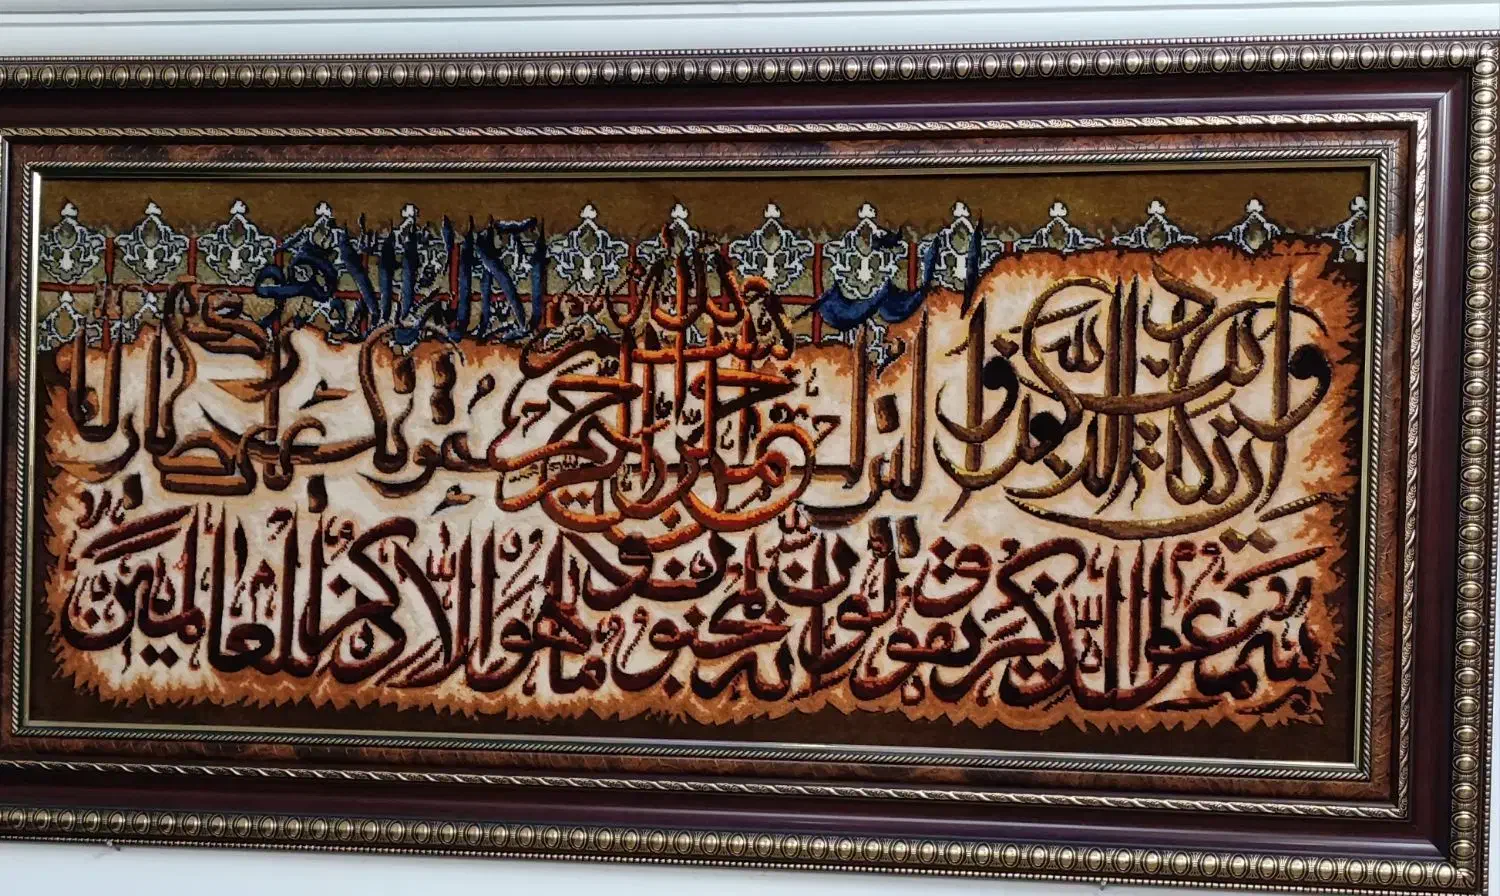 الله لا اله الا هو
بسم الله الرحمن الرحيم
وان يكاد الذين كفروا ليزلقونك بابصارهم لما
سمعوا الذكر ويقولون انه لمجنون وما هو الا ذكر للعالمين